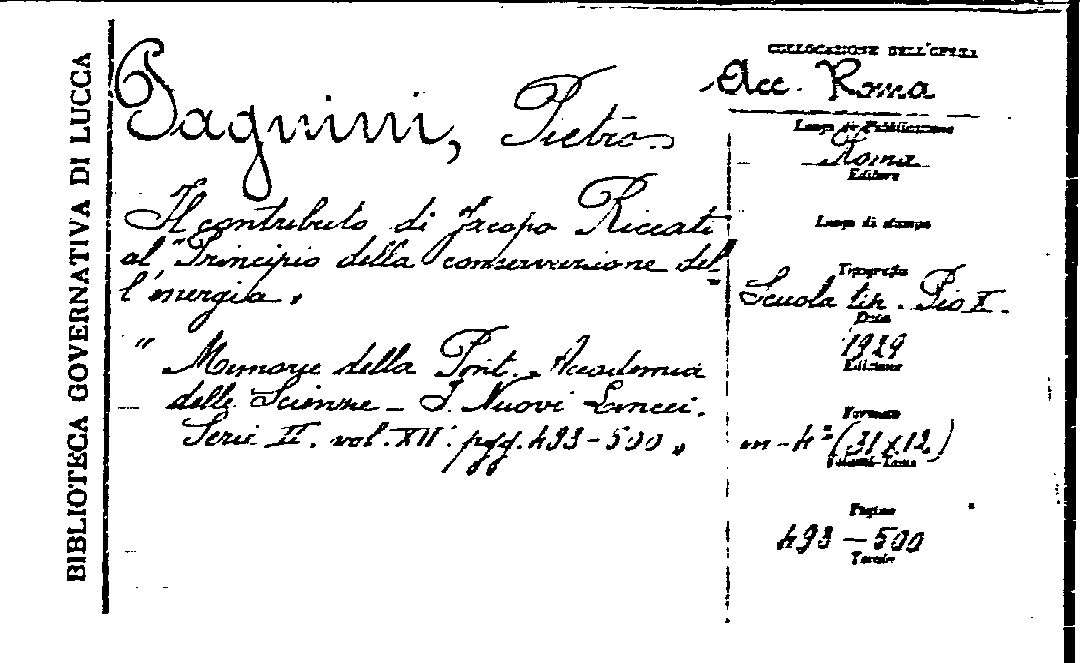 BIBLIOTECA GOVERNATIVA DI LUCCA
Pagnini, Pietro
Il contributo di Jacopo Riccati
al "Principio della conservazione del=
l'energia".
" Memorie della Pont. Accademia
delle Scienze - I Nuovi Lincei.
Serie II. vol. XII. pgg. 493-500 "
COLLOCAZIONE DELL'OPERA
Acc. Roma
Luogo di Pubblicazione
Roma
Editore
Luogo di stampa
Tipografia
Scuola tip. Pio X.
Data
1929
Edizione
Formato
in-4° (31x12.)
Pagine
493-500